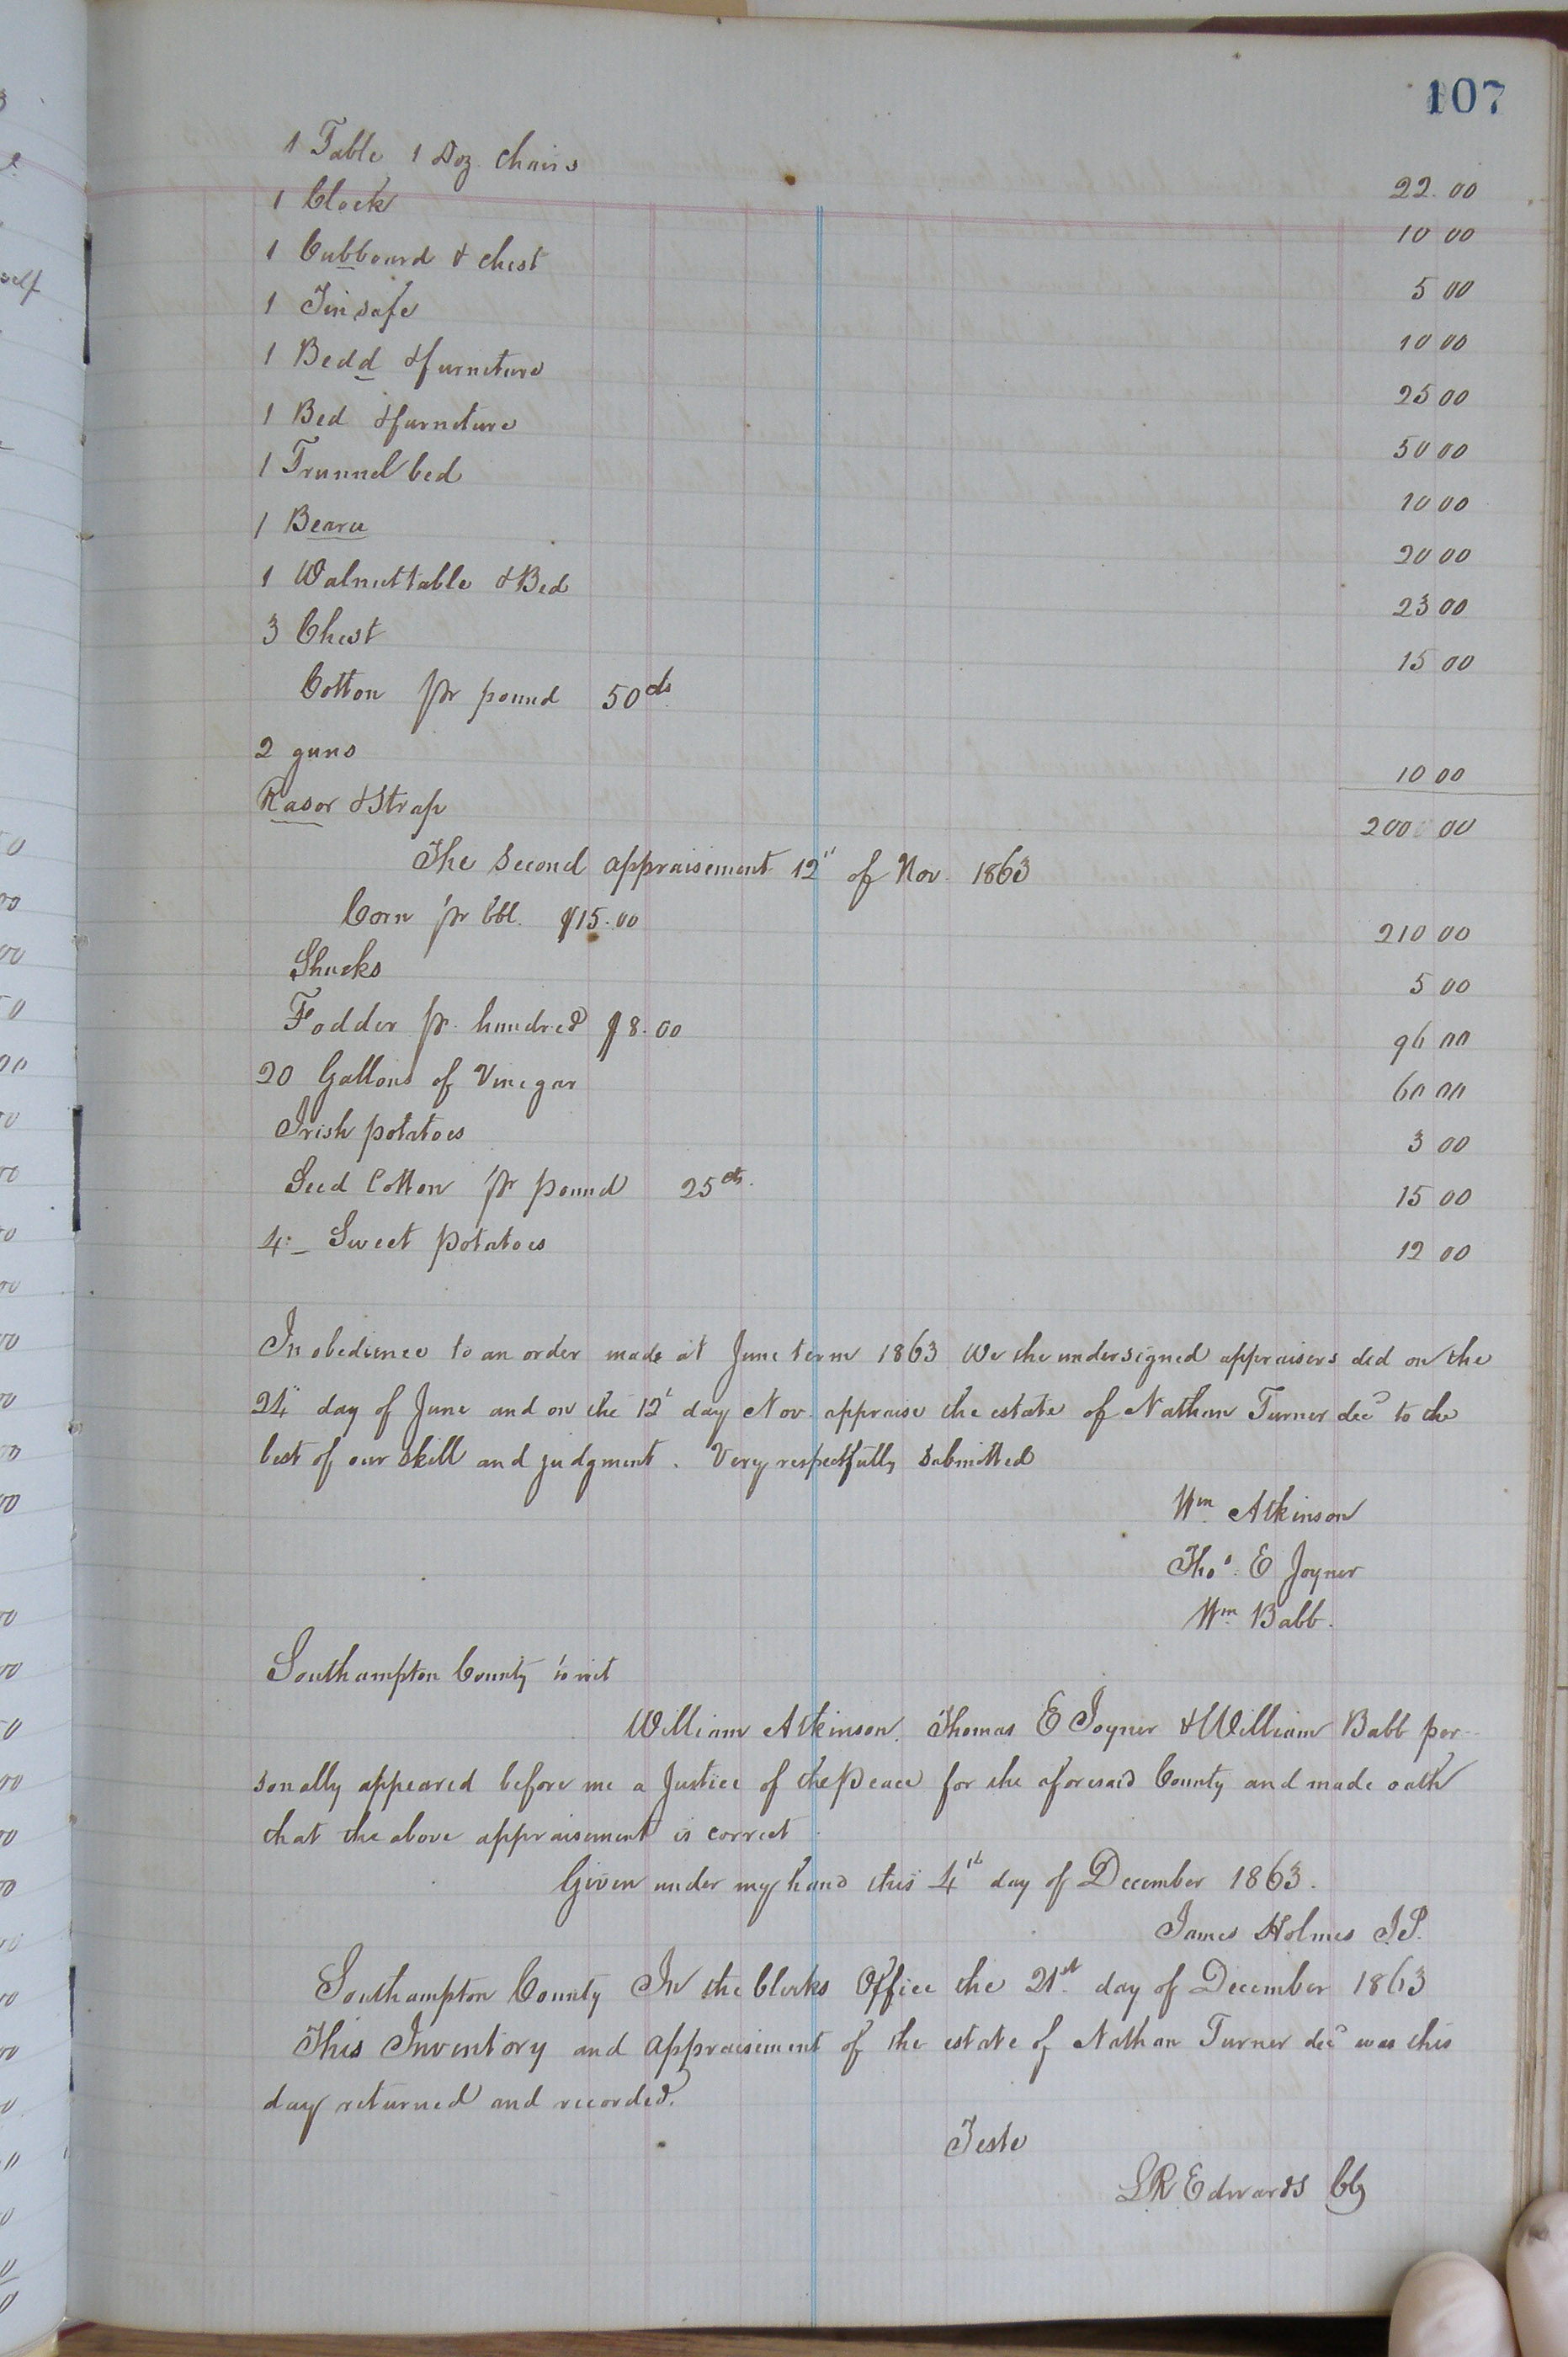 107
1 Table, 1 Doz. Chairs 22.00
1 Clock 10 00
1 Cubboard & Chest 5 00
1 Tin safe 10 00
1 Bedd & furneture 25 00
1 Bed & furneture 50 00
1 Trunnel bed 10 00
1 Bearu 20 00
1 Walnut table & Bed 23 00
3 Chest 15 00
Cotton pr pound 50 cts
2 guns 10 00
Rasor & Strap 200 00
The Second appraisement 12" of Nov. 1863
Corn pr bbl. $15.00 210 00
Shucks 5 00
Fodder pr. hundred $8.00 96 00
20 Gallons of Vinegar 60 00
Irish potatoes 3 00
Seed Cotton pr pound 25 cts. 15 00
4 Sweet potatoes 12 00
In obedience to an order made at June term 1863 We the undersigned appraisers did on the
24" day of June and on the 12' day Nov. appraise the estate of Nathan Turner decd to the
best of our skill and judgment. Very respectfully submitted
Wm. Atkinson
Thos. E Joyner
Wm. Babb.
Southampton County to wit
William Atkinson, Thomas E Joyner & William Babb per-
sonally appeared before me a Justice of the Peace for the aforesaid County and made oath
that the above appraisement is correct
Given under my hand this 4th day of December 1863.
James Holmes J.P.
Southampton County In the Clerks Office the 21st. day of December 1863
This Inventory and appraisement of the estate of Nathan Turner decd was this
day returned and recorded.
Teste
LR Edwards Clk